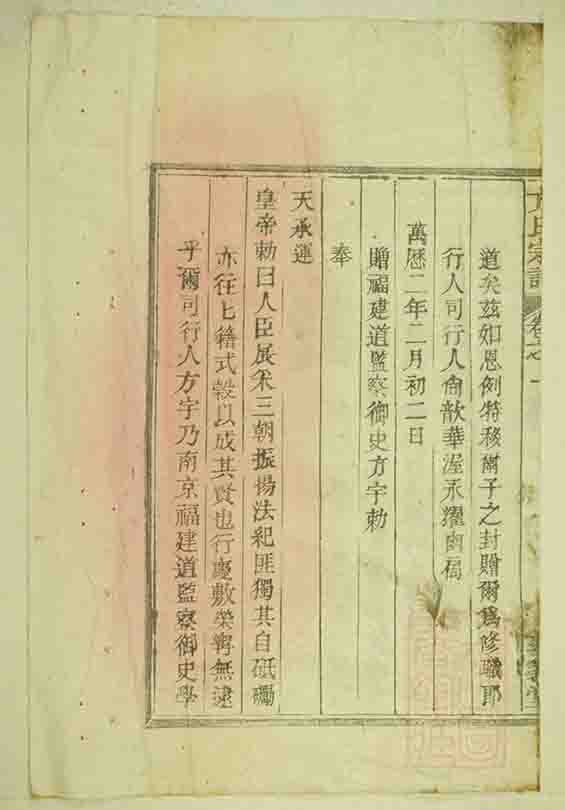 方氏宗譜
道矣茲如恩例特移爾子之封贈爾爲修職郎
行人司行人尙歆華渥永燿幽扃
萬曆二年二月初二日
贈福建道監察御史方宇勅
奉
天承運
皇帝勅曰人臣展采三朝振揚法紀匪獨其自砥礪
亦往匕籍式穀以成其賢也行慶敷榮寜無逮
乎爾司行人方宇乃南京福建道監察御史學